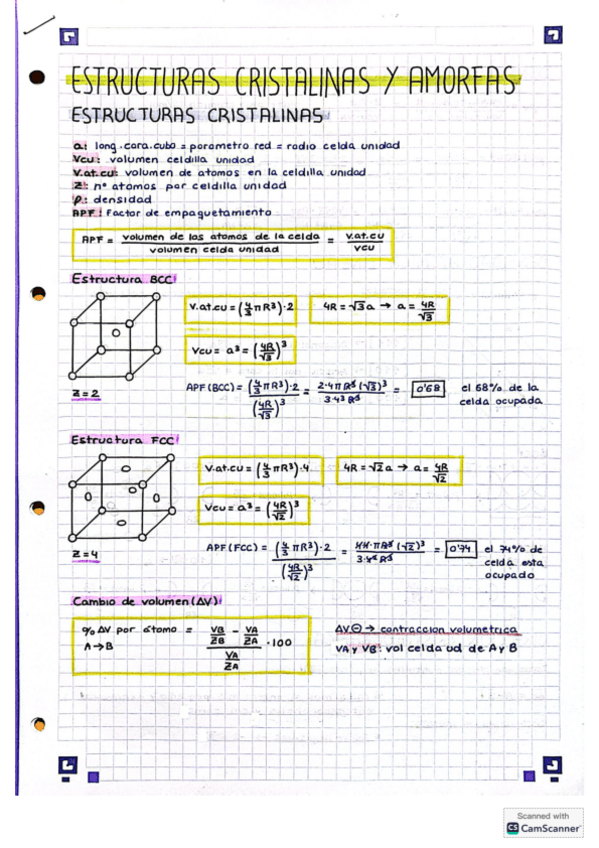 ESTRUCTURAS CRISTALINAS Y AMORFAS
ESTRUCTURAS CRISTALINAS
a: long.cara.cubo = parametro red = radio celda unidad
Vcu: volumen celdilla unidad
V.at.cu: volumen de atomos en la celdilla unidad
Z: nº atomos por celdilla unidad
ρ: densidad
APF: Factor de empaquetamiento
APF = volumen de los atomos de la celda / volumen celda unidad = v.at.cu / vcu
Estructura BCC:
V.at.cu = (4/3 πR³)·2
4R = √3 a → a = 4R/√3
Vcu = a³ = (4R/√3)³
Z = 2
APF (BCC) = (4/3 πR³)·2 / (4R/√3)³ = 2·4π R³ (√3)³ / 3·4³ R³ = 0'68
el 68% de la
celda ocupada
Estructura FCC:
V.at.cu = (4/3 πR³)·4
4R = √2 a → a = 4R/√2
Vcu = a³ = (4R/√2)³
Z = 4
APF (FCC) = (4/3 πR³)·2 / (4R/√2)³ = 4·4·πR³ (√2)³ / 3·4³ R³ = 0'74
el 74% de
celda esta
ocupado
Cambio de volumen (ΔV):
% ΔV por átomo = (VB/ZB - VA/ZA) / (VA/ZA) · 100
A → B
ΔV ⊖ → contraccion volumetrica
VA y VB: vol celda ud de A y B
Scanned with
CS CamScanner